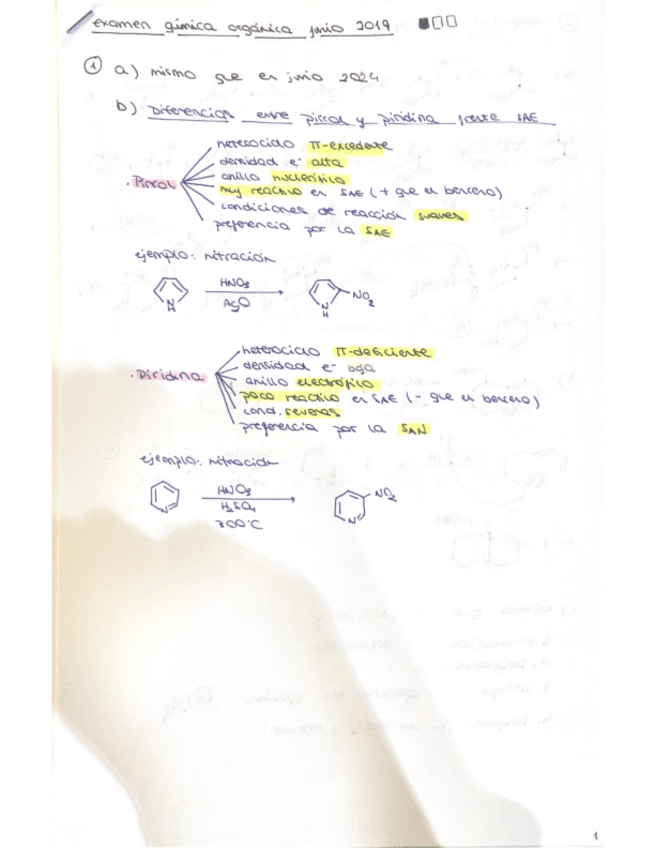 examen química orgánica junio 2019
① a) mismo que en junio 2024
b) Diferencias entre pirrol y piridina frente SAE
· Pirrol
heterociclo π-excedente
densidad e⁻ alta
anillo nucleofílico
muy reactivo en SAE (+ que el benceno)
condiciones de reacción suaves
preferencia por la SAE
ejemplo: nitración
N
H
HNO₃
Ac₂O
N
H
NO₂
· Piridina
heterociclo π-deficiente
densidad e⁻ baja
anillo electrófilo
poco reactivo en SAE (- que el benceno)
cond. severas
preferencia por la SAN
ejemplo: nitración
N
HNO₃
H₂SO₄
300°C
N
NO₂
1